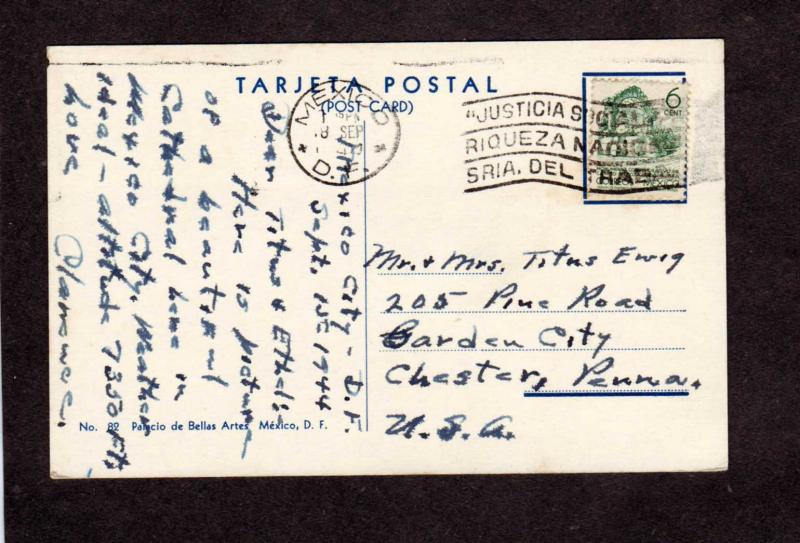 TARJETA POSTAL
(POST CARD)
MEXICO
18 SEP
D. F.
"JUSTICIA SOCIAL
RIQUEZA NACIONAL
SRIA. DEL TRAB
6
CENT
MEXICO
Mexico City - D.F.
Sept. 15 1944
Dear Titus & Ethel:-
Here is picture
of a beautiful
Cathedral here in
Mexico City. Weather
ideal - altitude 7350 ft.
Love
Clarence.
Mr. & Mrs. Titus Ewig
205 Pine Road
Garden City
Chester, Penna.
U.S.A.
No. 82 Palacio de Bellas Artes México, D. F.